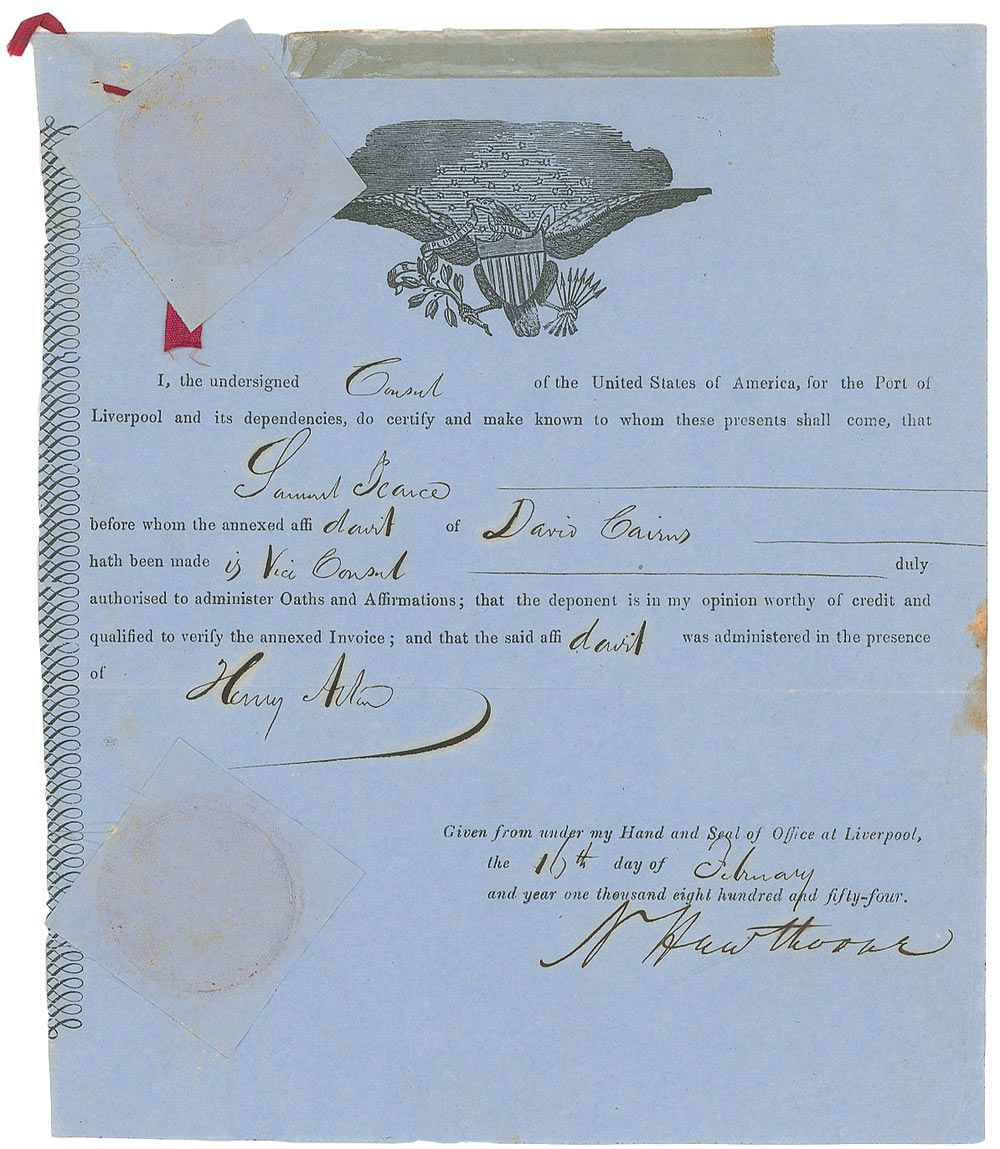 PLURIBUS UNUM
I, the undersigned Consul of the United States of America, for the Port of
Liverpool and its dependencies, do certify and make known to whom these presents shall come, that
Samuel Pearce
before whom the annexed affi davit of David Cairns
hath been made is Vice Consul duly
authorised to administer Oaths and Affirmations; that the deponent is in my opinion worthy of credit and
qualified to verify the annexed Invoice; and that the said affi davit was administered in the presence
of Henry
Given from under my Hand and Seal of Office at Liverpool,
the th day of February
and year one thousand eight hundred and fifty-four.
N Hawthorne